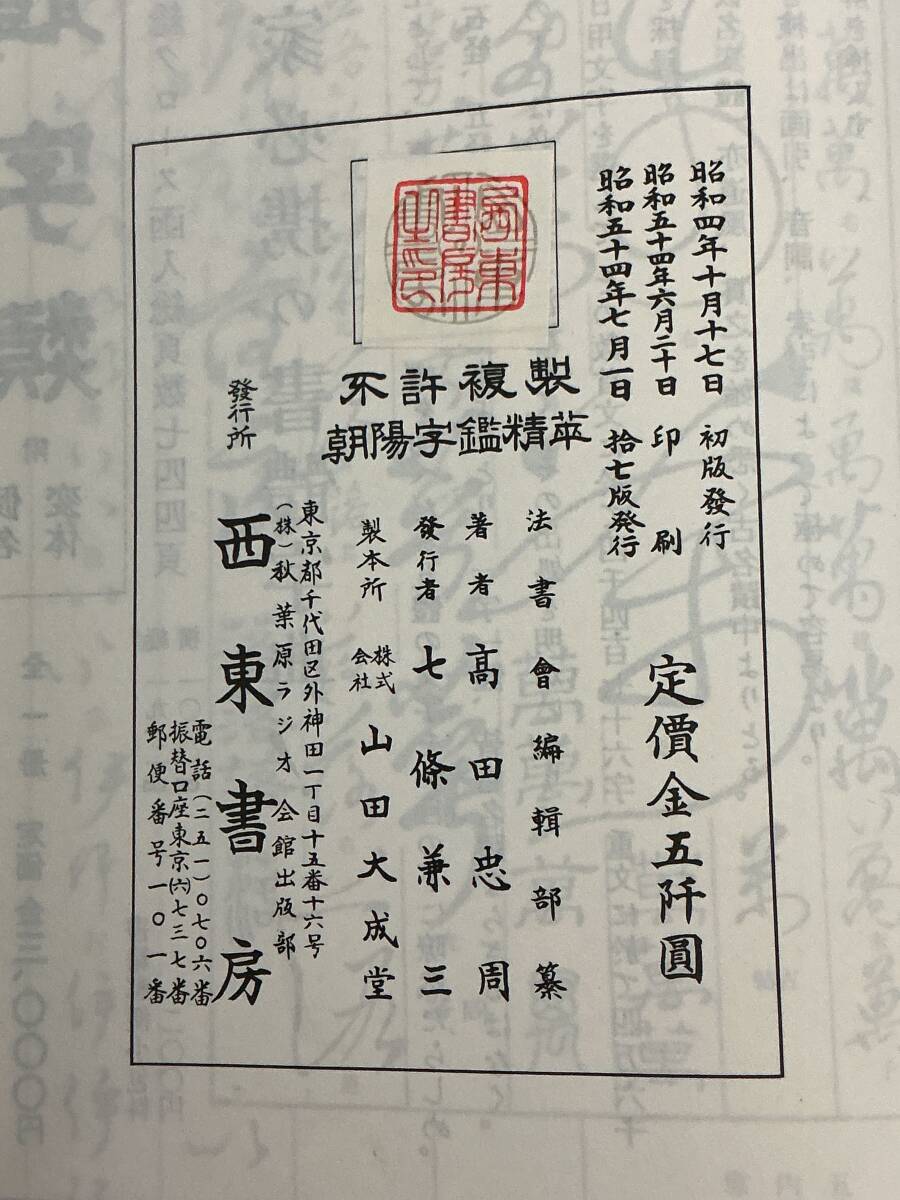 昭和四年十月十七日 初版發行
昭和五十四年六月二十日 印刷
昭和五十四年七月一日 拾七版発行
定價金五阡圓
西東書房之印
不許複製
朝陽字鑑精萃
法書會編輯部纂
著者 高田忠周
發行者 七條兼三
製本所 株式会社 山田大成堂
東京都千代田区外神田一丁目十五番十六号
(株)秋葉原ラジオ会館出版部
發行所 西東書房
電話(二五一)〇七〇六番
振替口座東京(六)七三七番
郵便番号一〇一番